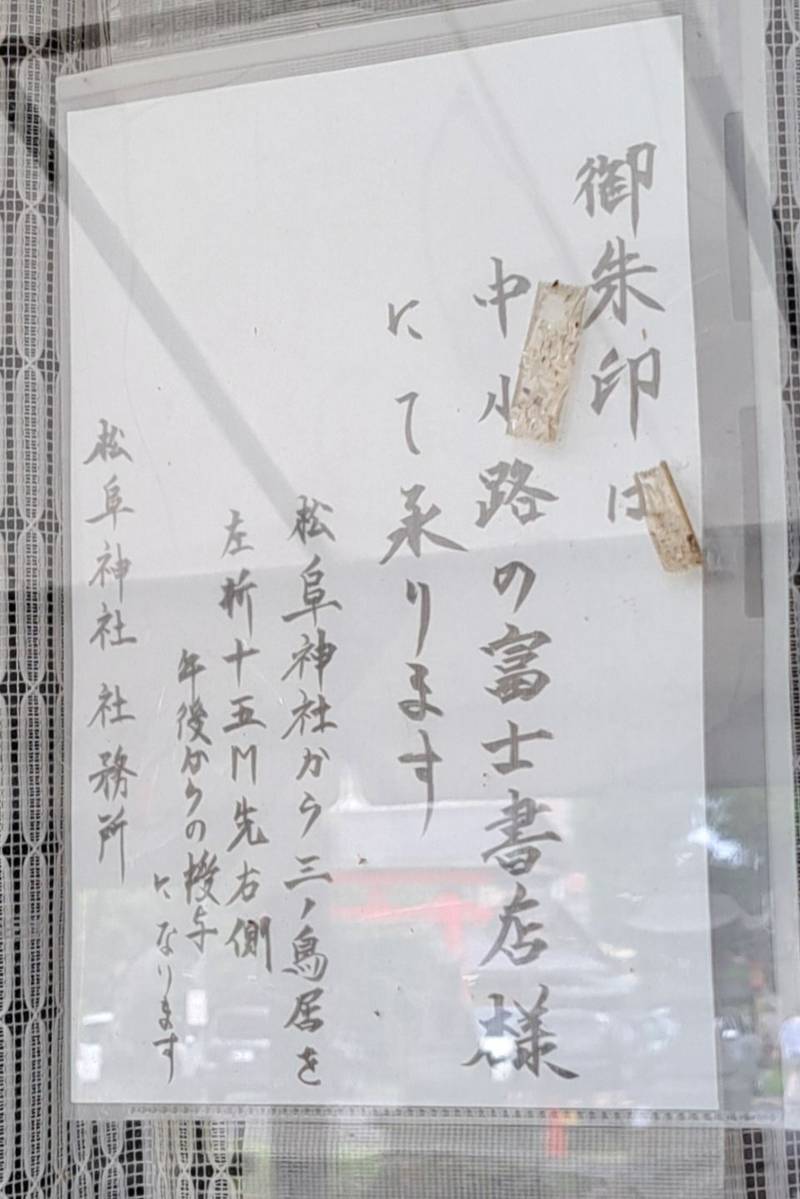 御朱印は
中小路の富士書店様
にて承ります
松阜神社から三ノ鳥居を
左折十五M先右側
午後からの授与
になります
松阜神社 社務所